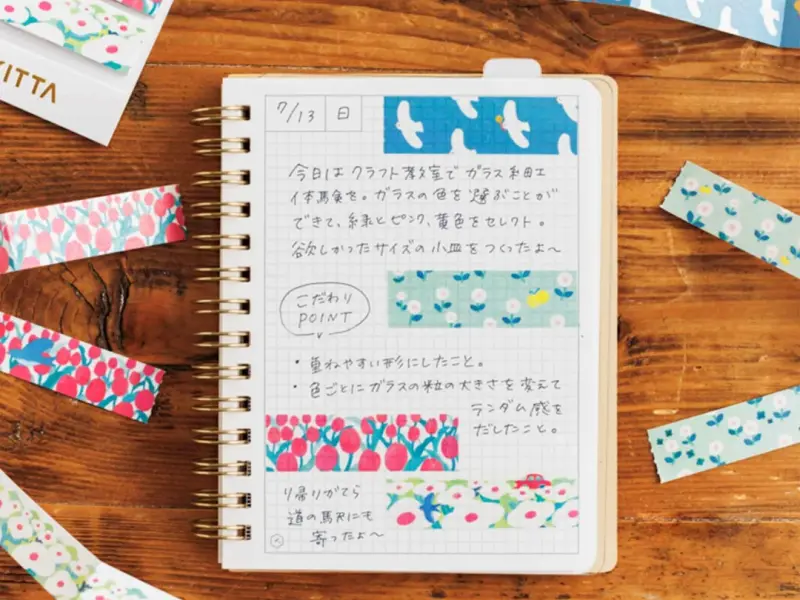 KITTA
7/13 日
今日は クラフト教室で ガラス細工
体験を。ガラスの色を選ぶことが
できて、緑とピンク、黄色をセレクト。
欲しかったサイズの小皿をつくったよ〜
こだわり
POINT
・重ねやすい形にしたこと。
・色ごとにガラスの粒の大きさを変えて
ランダム感を
だしたこと。
帰りがてら
道の駅にも
寄ったよ〜